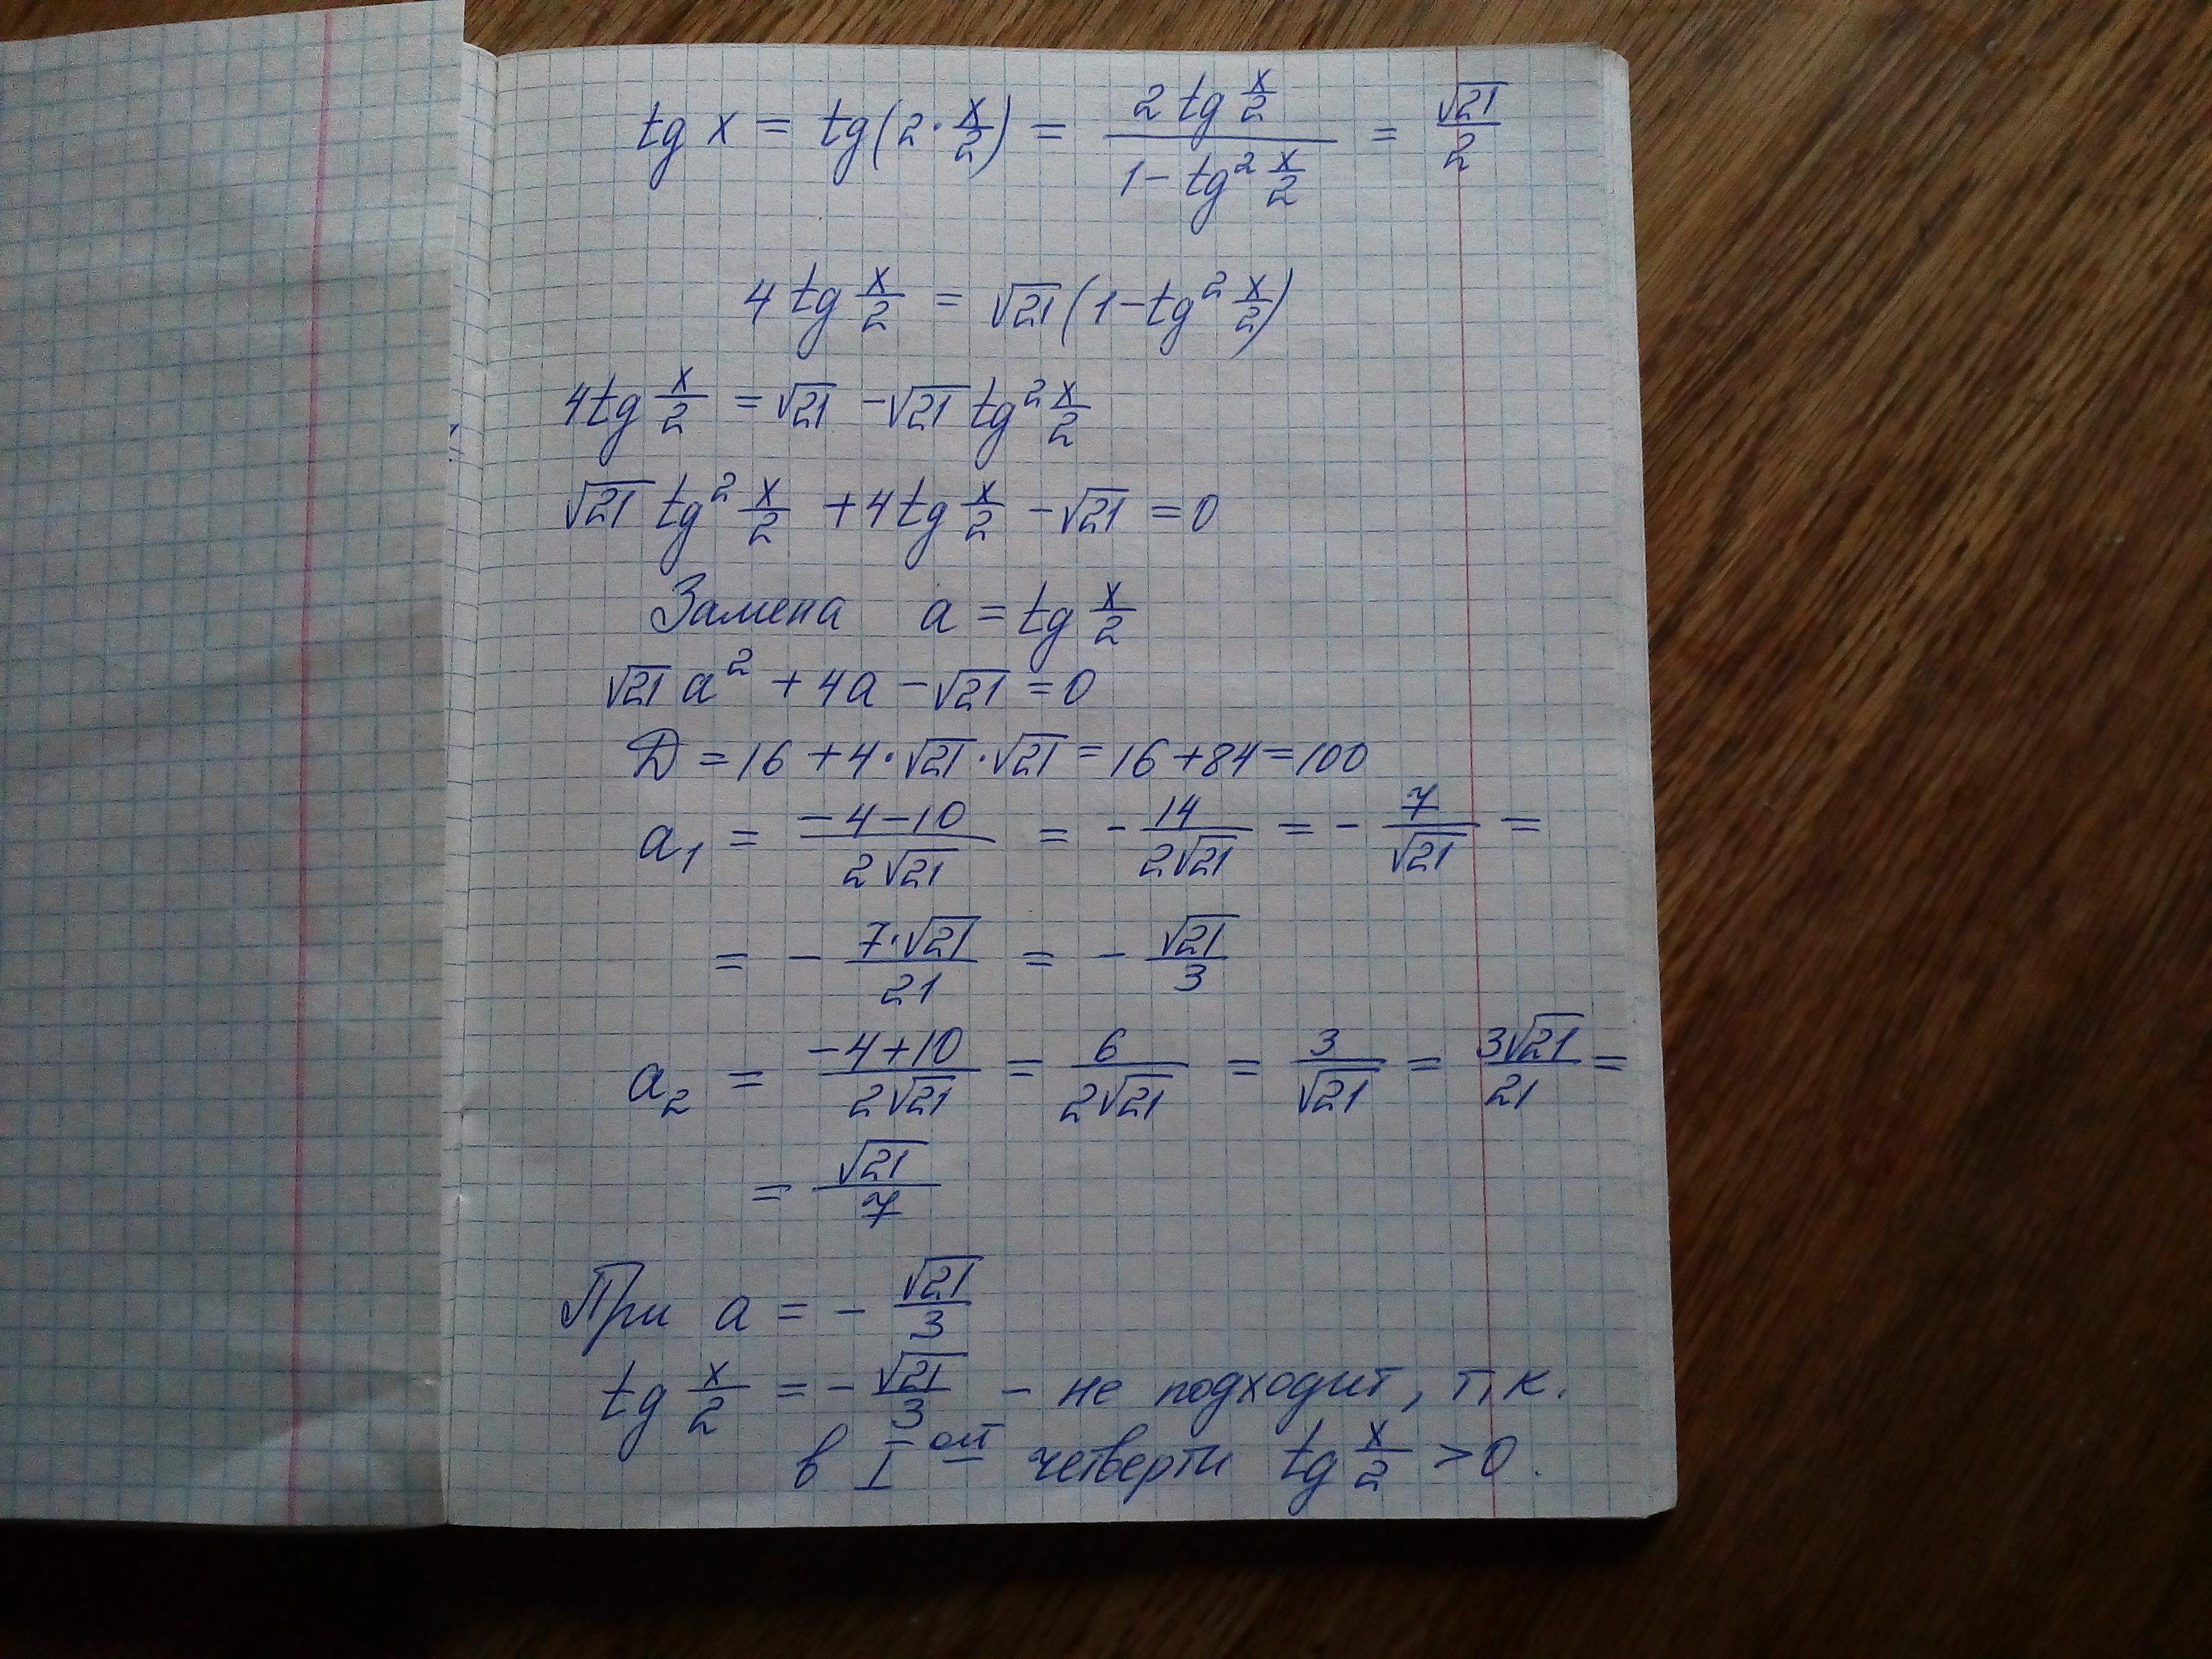 tg x = tg(2·x/2) = (2 tg x/2)/(1 - tg² x/2) = √21/2
4 tg x/2 = √21 (1 - tg² x/2)
4 tg x/2 = √21 - √21 tg² x/2
√21 tg² x/2 + 4 tg x/2 - √21 = 0
Замена a = tg x/2
√21 a² + 4a - √21 = 0
D = 16 + 4·√21·√21 = 16 + 84 = 100
a₁ = (-4-10)/(2√21) = -14/(2√21) = -7/√21 =
= -(7·√21)/21 = -√21/3
a₂ = (-4+10)/(2√21) = 6/(2√21) = 3/√21 = 3√21/21 =
= √21/7
При a = -√21/3
tg x/2 = -√21/3 - не подходит, т.к.
в I ой четверти tg x/2 > 0.